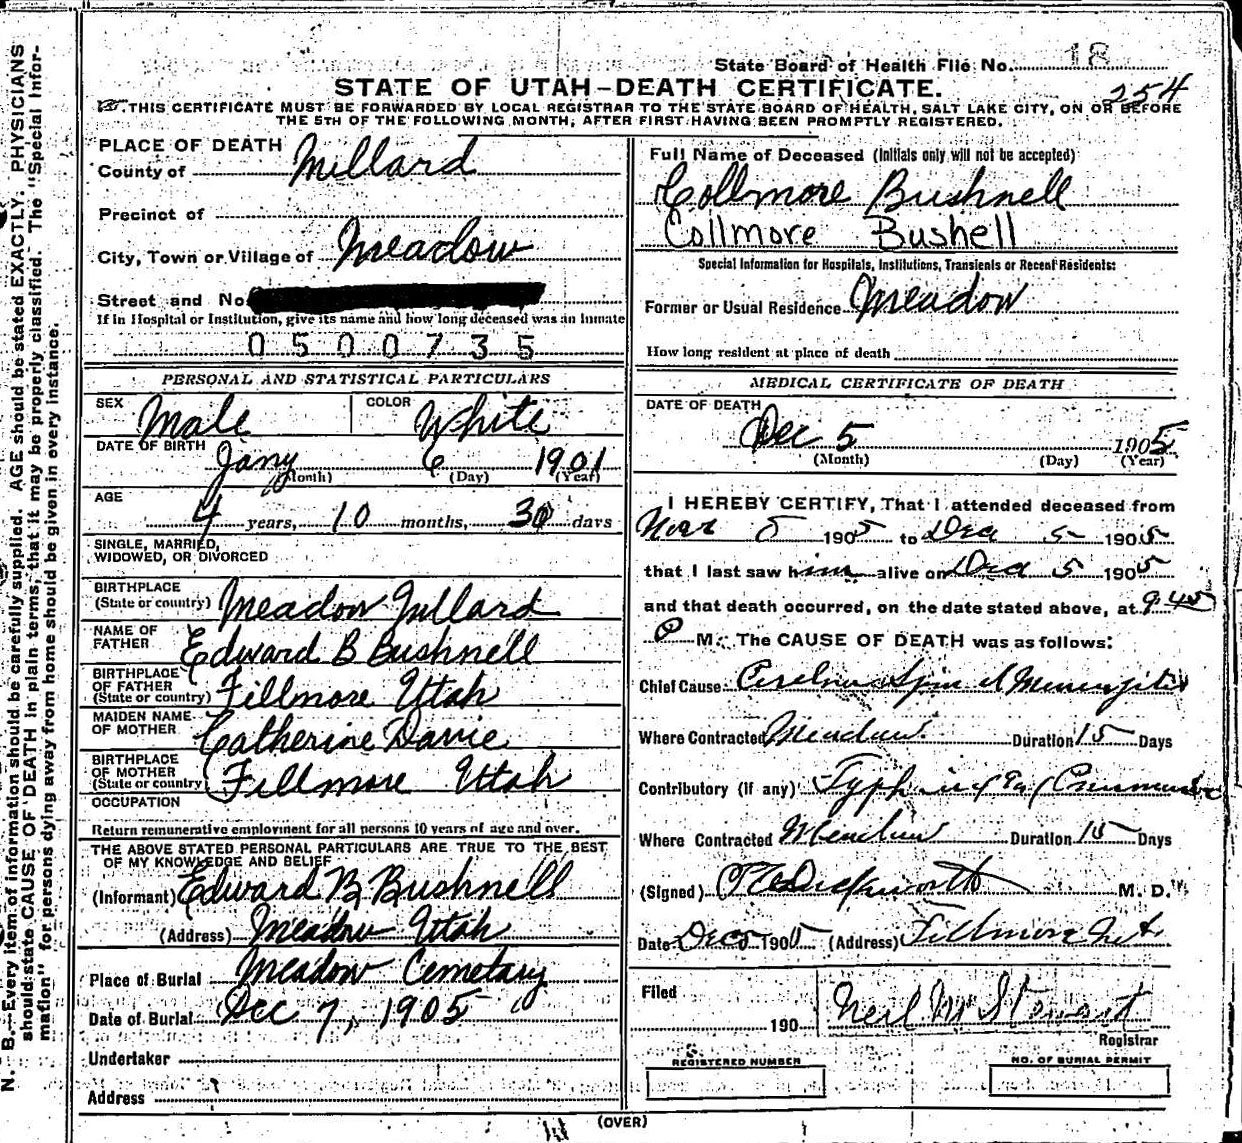 State Board of Health File No. 18
254
STATE OF UTAH—DEATH CERTIFICATE.
THIS CERTIFICATE MUST BE FORWARDED BY LOCAL REGISTRAR TO THE STATE BOARD OF HEALTH, SALT LAKE CITY, ON OR BEFORE
THE 5TH OF THE FOLLOWING MONTH, AFTER FIRST HAVING BEEN PROMPTLY REGISTERED.
PLACE OF DEATH
County of Millard
Precinct of
City, Town or Village of Meadow
Street and No.
If in Hospital or Institution, give its name and how long deceased was an inmate
0500735
PERSONAL AND STATISTICAL PARTICULARS
SEX Male COLOR White
DATE OF BIRTH Jany 6 1901
(Month) (Day) (Year)
AGE
4 years, 10 months, 30 days
SINGLE, MARRIED,
WIDOWED, OR DIVORCED
BIRTHPLACE
(State or country) Meadow Millard
NAME OF
FATHER Edward B Bushnell
BIRTHPLACE
OF FATHER
(State or country) Fillmore Utah
MAIDEN NAME
OF MOTHER Catherine Davie
BIRTHPLACE
OF MOTHER
(State or country) Fillmore Utah
OCCUPATION
Return remunerative employment for all persons 10 years of age and over.
THE ABOVE STATED PERSONAL PARTICULARS ARE TRUE TO THE BEST
OF MY KNOWLEDGE AND BELIEF
(Informant) Edward B Bushnell
(Address) Meadow Utah
Place of Burial Meadow Cemetary
Date of Burial Dec 7, 1905
Undertaker
Address
Full Name of Deceased (Initials only will not be accepted)
Collmore Bushnell
Collmore Bushell
Special Information for Hospitals, Institutions, Transients or Recent Residents:
Former or Usual Residence Meadow
How long resident at place of death
MEDICAL CERTIFICATE OF DEATH
DATE OF DEATH
Dec 5 1905
(Month) (Day) (Year)
I HEREBY CERTIFY, That I attended deceased from
5 1905 to Dec 5 1905
that I last saw him alive on Dec 5 1905
and that death occurred, on the date stated above, at 9.45
P M. The CAUSE OF DEATH was as follows:
Chief Cause Cerebro Spinal Meningitis
Where Contracted Meadow Duration 15 Days
Contributory (If any)
Where Contracted Meadow Duration 15 Days
(Signed) M. D.
Date Dec 5 1905 (Address) Fillmore Ut
Filed
190 Neil M Stewart
Registrar
REGISTERED NUMBER
NO. OF BURIAL PERMIT
(OVER)
N. B.—Every item of information should be carefully supplied. AGE should be stated EXACTLY. PHYSICIANS
should state CAUSE OF DEATH in plain terms, that it may be properly classified. The "Special Infor-
mation" for persons dying away from home should be given in every instance.